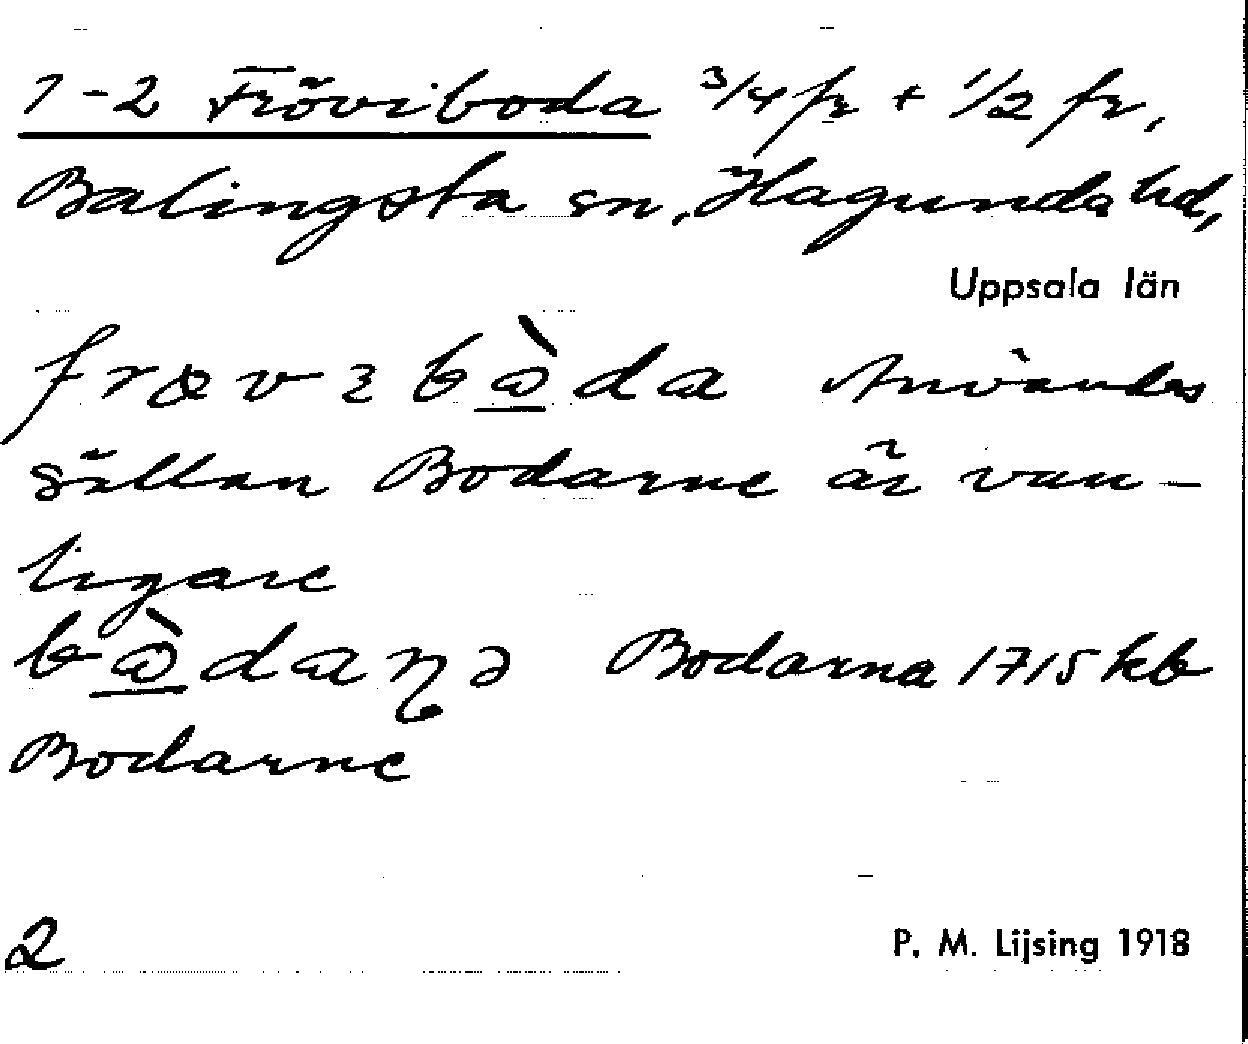 1-2 Fröviboda 3/4 fr + 1/2 fr,
Balingsta sn, Hagunda hd,
Uppsala län
frøvɛbὼ̲da Användes
sällan Bodarne är van-
ligare
bὼ̲daɳə Bodarna 1715 kb
Bodarne
2
P. M. Lijsing 1918